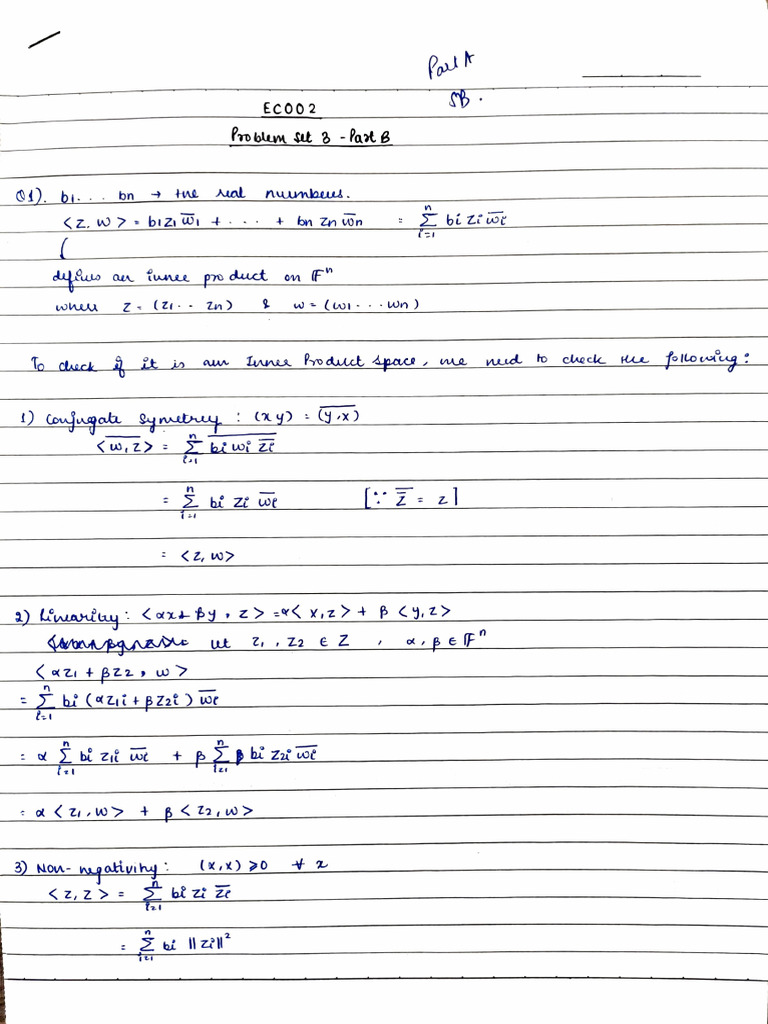 Part A
SB.
EC002
Problem Set 3 - Part B
Q1). b1... bn → +ve real numbers.
<z, w> = b1z1w̅1 + ... + bn zn w̅n = Σⁿᵢ₌₁ bi zi w̅i
(
defines an inner product on Fⁿ
where z = (z1.. zn) & w = (w1...wn)
To check if it is an Inner Product space, we need to check the following:
1) Conjugate Symetry : (x y) = \overline{(y,x)}
<\overline{w,z}> = Σⁿᵢ₌₁ \overline{bi wi z̅i}
= Σⁿᵢ₌₁ bi zi w̅i [∵ \overline{z̅} = z]
= <z, w>
2) Linearity: <αx + βy, z> = α<x,z> + β<y,z>
let z1, z2 ∈ Z , α, β ∈ Fⁿ
<αz1 + βz2, w>
= Σⁿᵢ₌₁ bi (αz1i + βz2i) w̅i
= α Σⁿᵢ₌₁ bi z1i w̅i + β Σⁿᵢ₌₁ bi z2i w̅i
= α<z1, w> + β<z2, w>
3) Non-negativity: (x,x) ≥0 ∀ x
<z, z> = Σⁿᵢ₌₁ bi zi z̅i
= Σⁿᵢ₌₁ bi ||zi||²